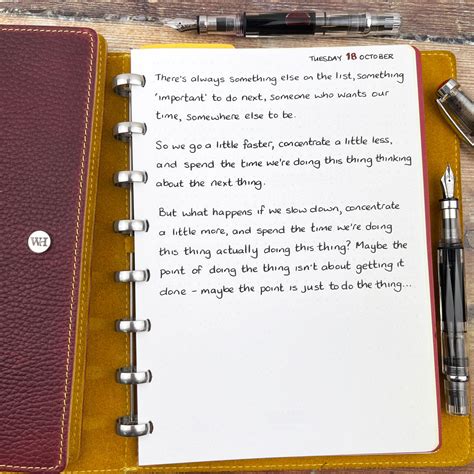 TUESDAY 18 OCTOBER
There's always something else on the list, something
'important' to do next, someone who wants our
time, somewhere else to be.
So we go a little faster, concentrate a little less,
and spend the time we're doing this thing thinking
about the next thing.
But what happens if we slow down, concentrate
a little more, and spend the time we're doing
this thing actually doing this thing? Maybe the
point of doing the thing isn't about getting it
done - maybe the point is just to do the thing...
WH